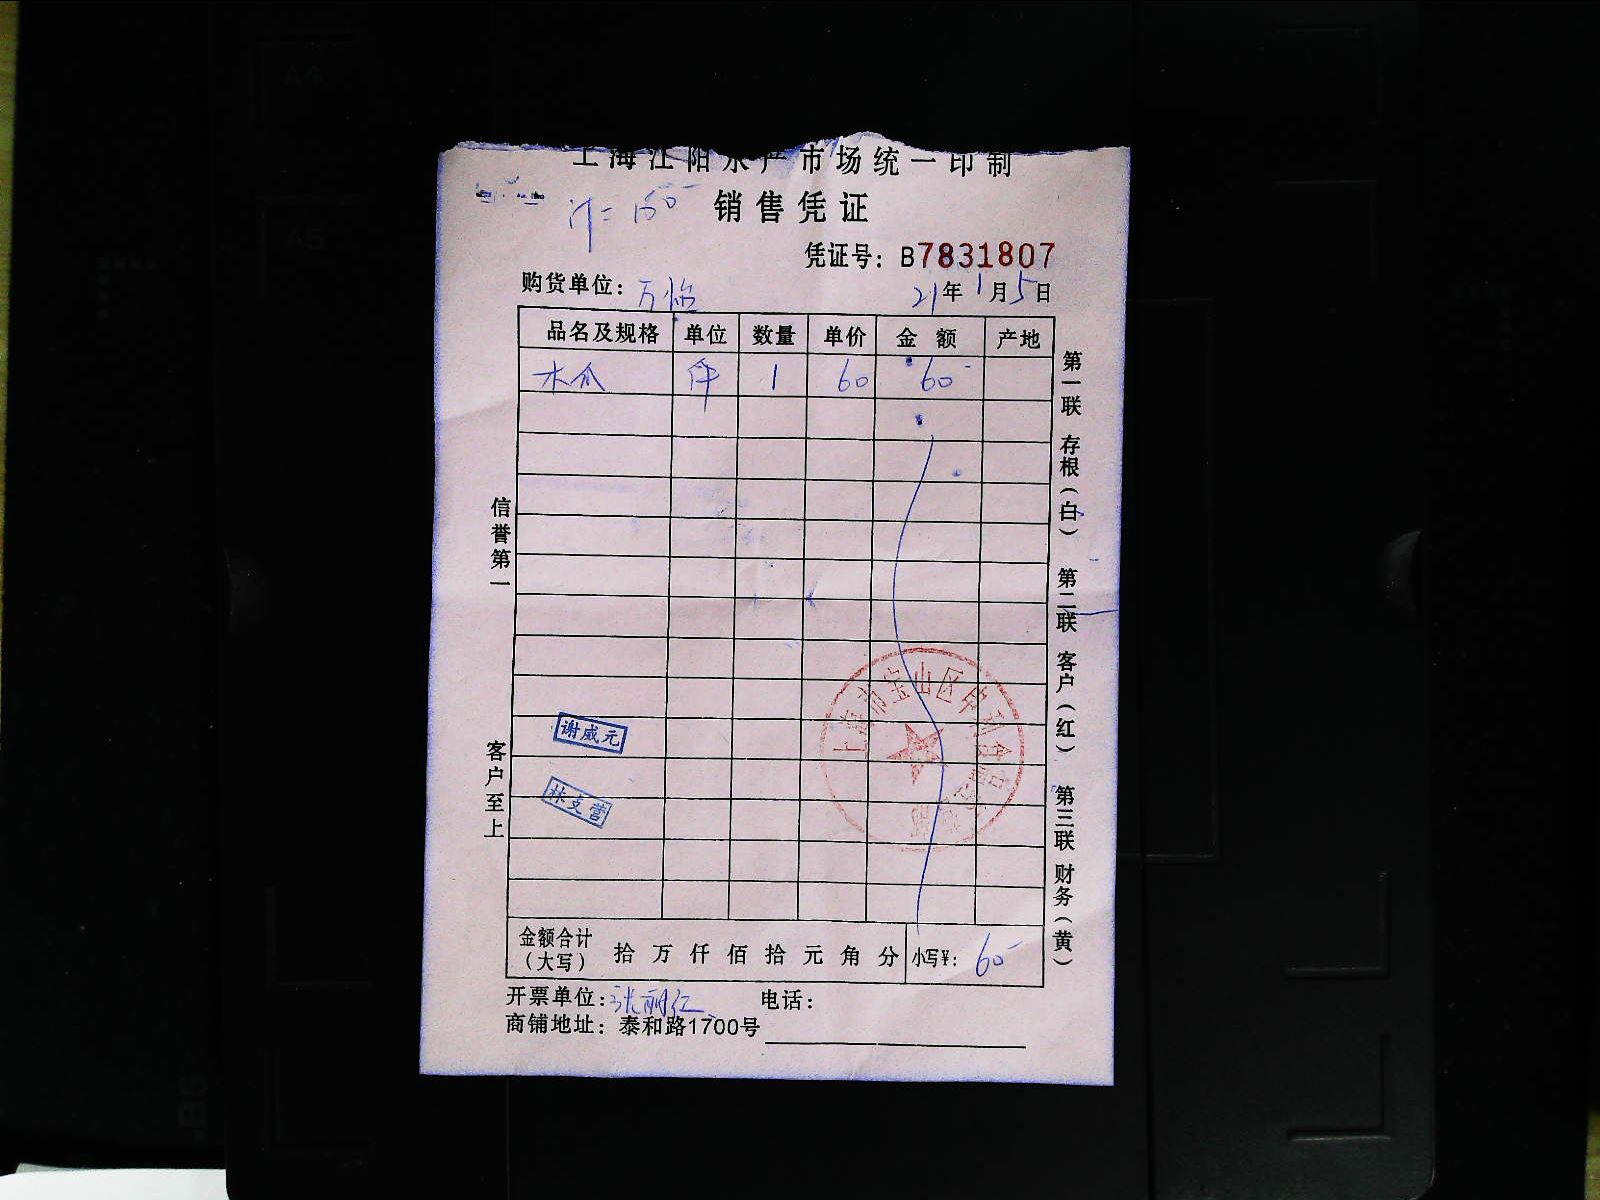 上海江阳水产市场统一印制
销售凭证
凭证号：B7831807
购货单位：万怡 21年1月5日
品名及规格 单位 数量 单价 金额 产地
木瓜 件 1 60 60-
信誉第一
客户至上
第一联 存根（白） 第二联 客户（红） 第三联 财务（黄）
谢威元
林支营
上海市宝山区
金额合计（大写） 拾 万 仟 佰 拾 元 角 分 小写¥：60-
开票单位：张丽红 电话：
商铺地址：泰和路1700号